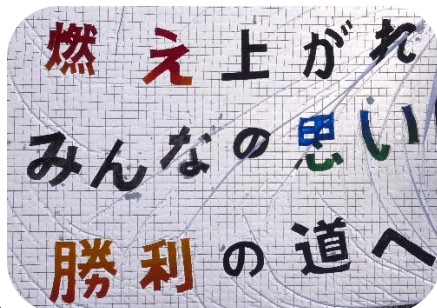 燃え上がれ
みんなの思い
勝利の道へ